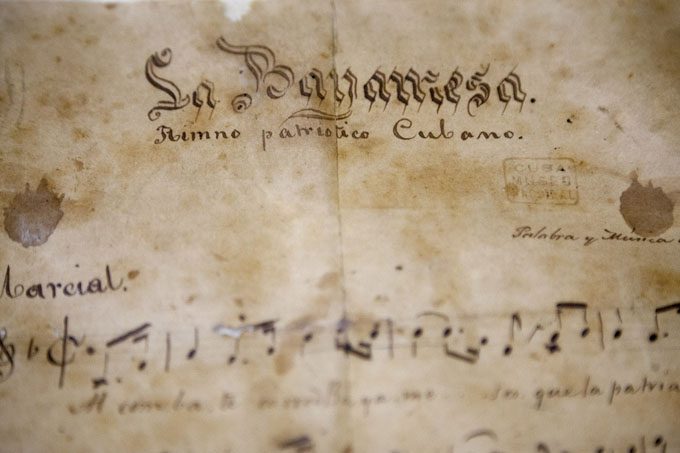 La Bayamesa.
Himno patriotico Cubano.
CUBA
MUSEO
Palabra y Música
Marcial.
Al comba te Bayame ses que la patria